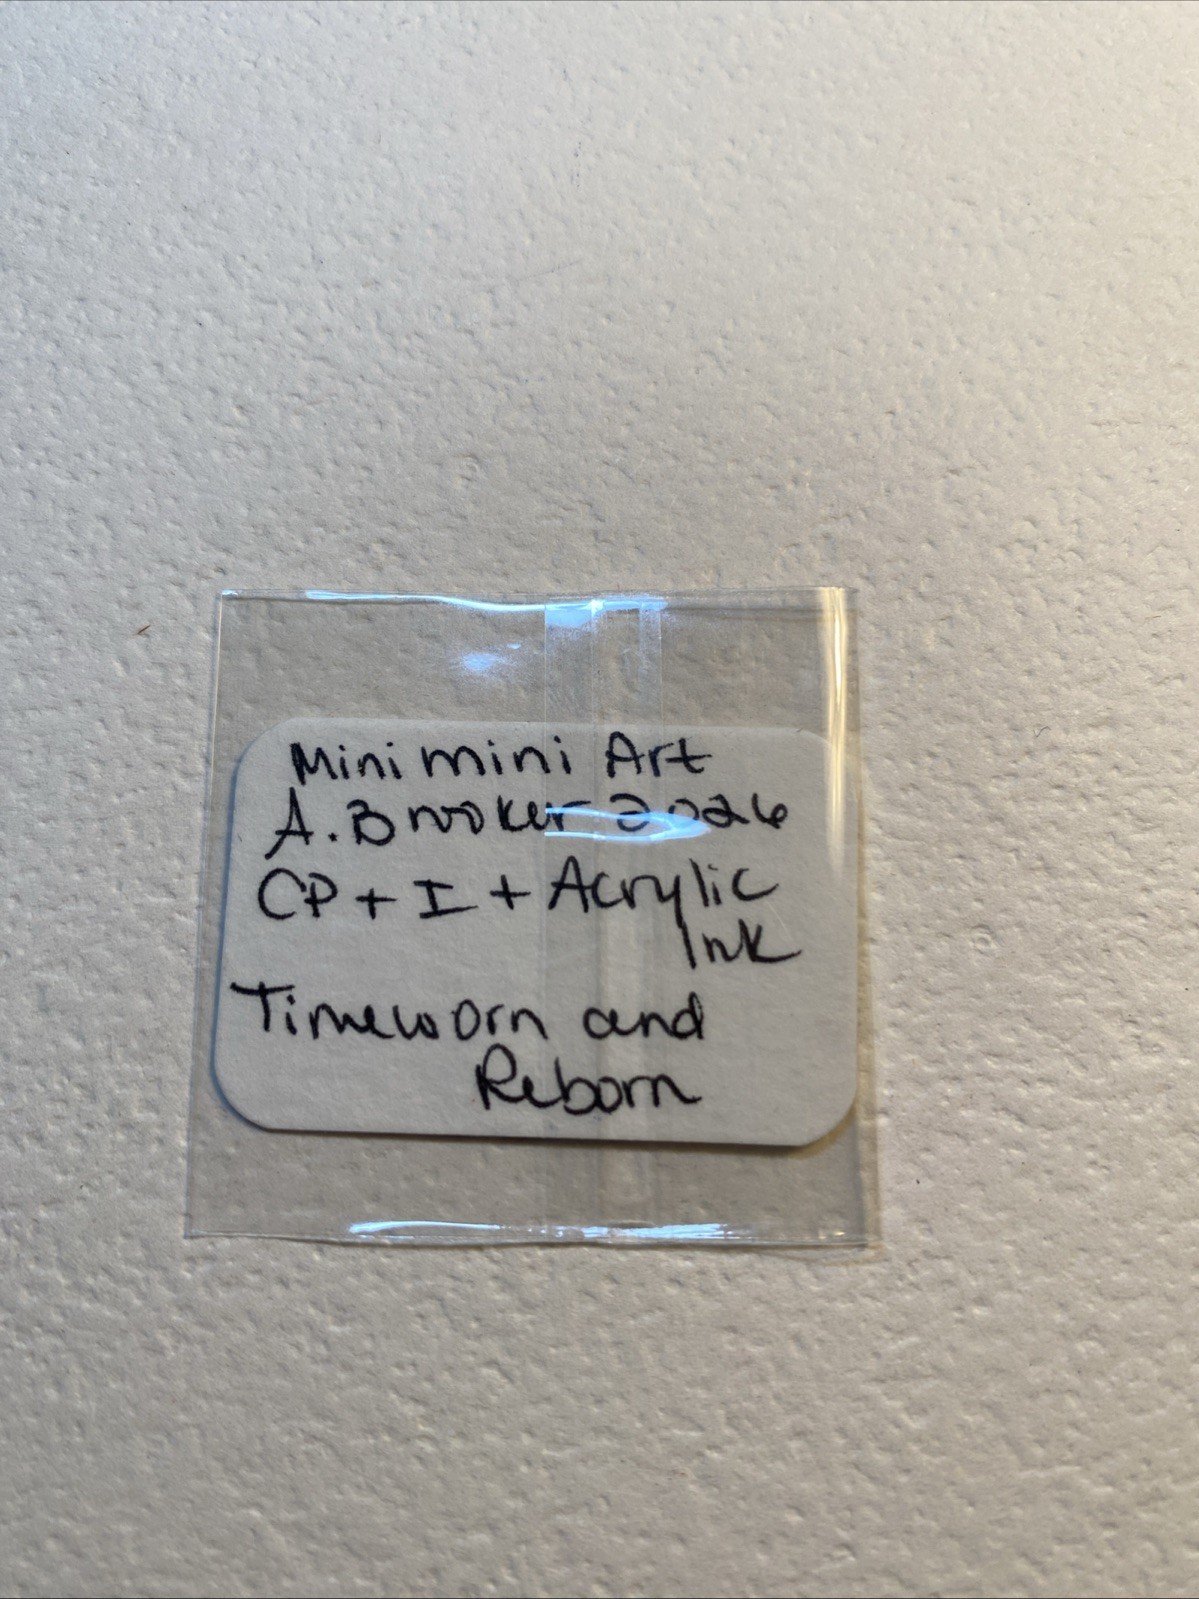 Mini mini Art
A. Brooker 2026
CP + I + Acrylic
Ink
Timeworn and
Reborn